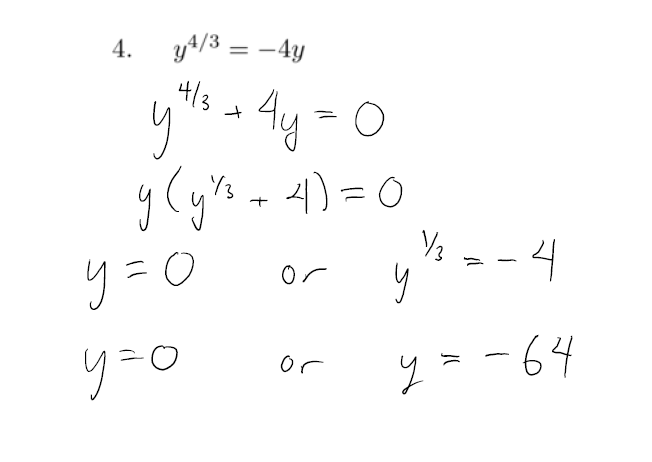 4. y^{4/3} = −4y
y^{4/3} + 4y = 0
y(y^{1/3} + 4) = 0
y = 0 or y^{1/3} = −4
y = 0 or y = −64